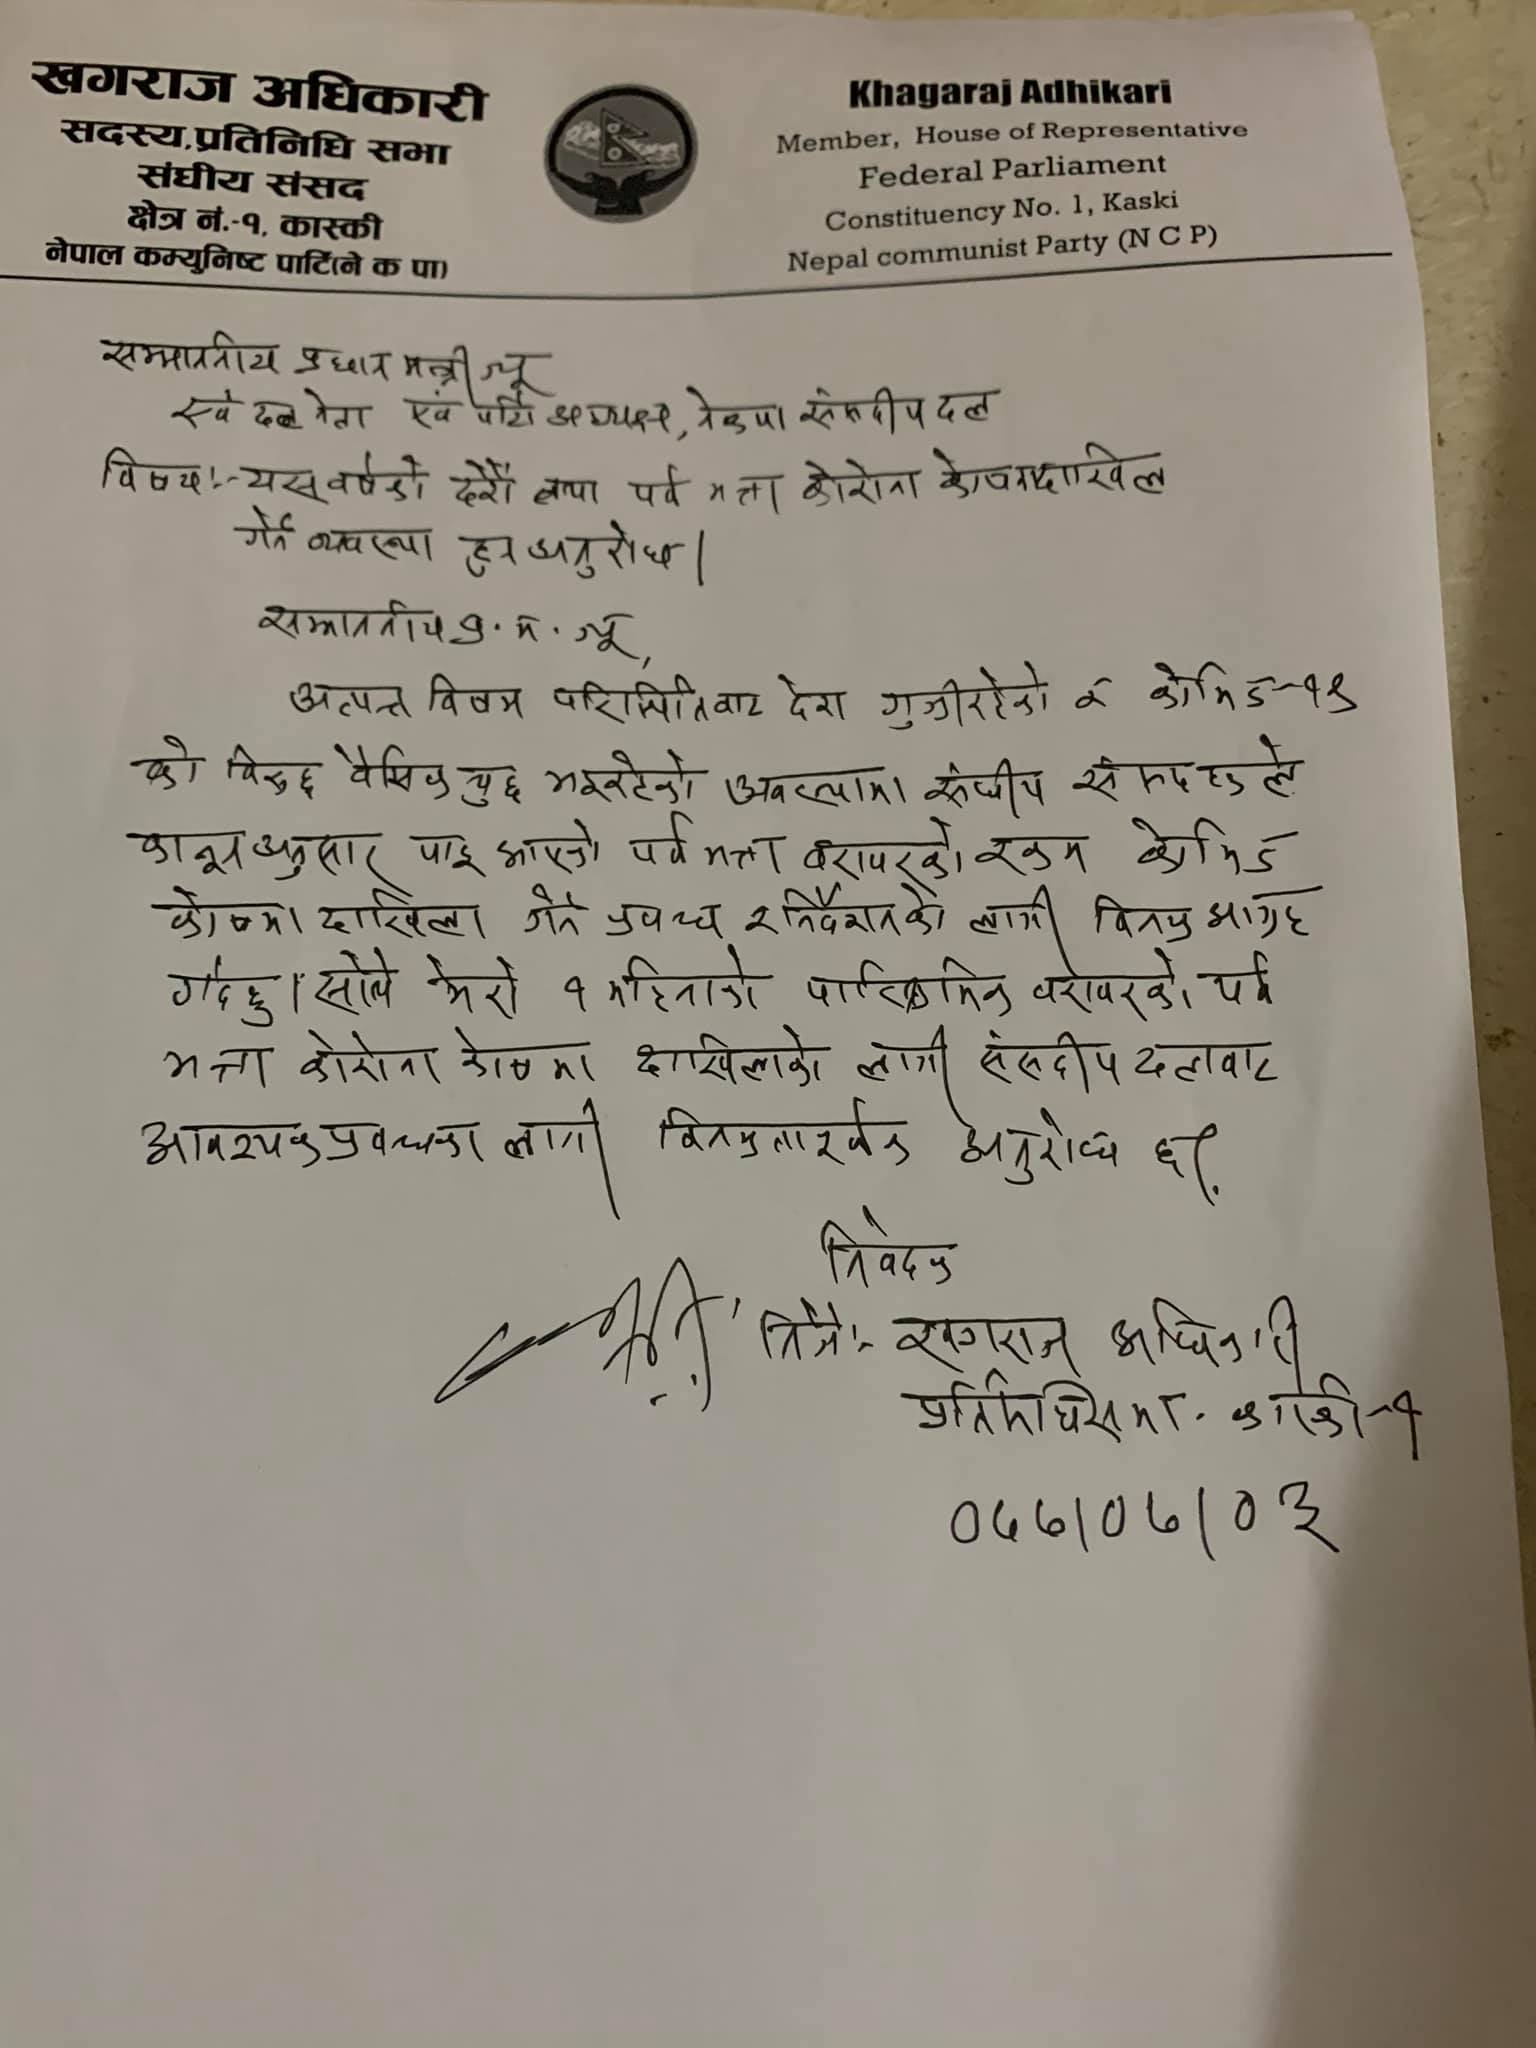 खगराज अधिकारी
सदस्य,प्रतिनिधि सभा
संघीय संसद
क्षेत्र नं.-१, कास्की
नेपाल कम्युनिष्ट पार्टि(ने क पा)
Khagaraj Adhikari
Member, House of Representative
Federal Parliament
Constituency No. 1, Kaski
Nepal communist Party (N C P)
सम्माननीय प्रधान मन्त्रीज्यू
एवं दल नेता एवं पार्टि अध्यक्ष, नेकपा संसदीय दल
विषय:- यस वर्षको दशैं पर्व भत्ता कोरोना कोषमा दाखिल
गर्ने व्यवस्था हुन अनुरोध।
सम्माननीय प्र. म. ज्यू,
अत्यन्त विषम परिस्थितिबाट देश गुज्रिरहेको र कोभिड-१९
को विरुद्ध वैश्विक युद्ध भइरहेको अवस्थामा संघीय संसदहरुले
कानून अनुसार पाइ आएको पर्व भत्ता बराबरको रकम कोभिड
कोषमा दाखिला गर्ने प्रवन्ध र निर्देशनको लागी विनम्र आग्रह
गर्दछु। सोले मेरो १ महिनाको पारिश्रमिक बराबरको पर्व
भत्ता कोरोना कोषमा दाखिलाको लागी संसदीय दलबाट
आवश्यक प्रवन्धका लागी विनम्रतापूर्वक अनुरोध छ।
निवेदक
खगराज अधिकारी
प्रतिनिधिसभा. कास्की-१
०७७/०७/०३